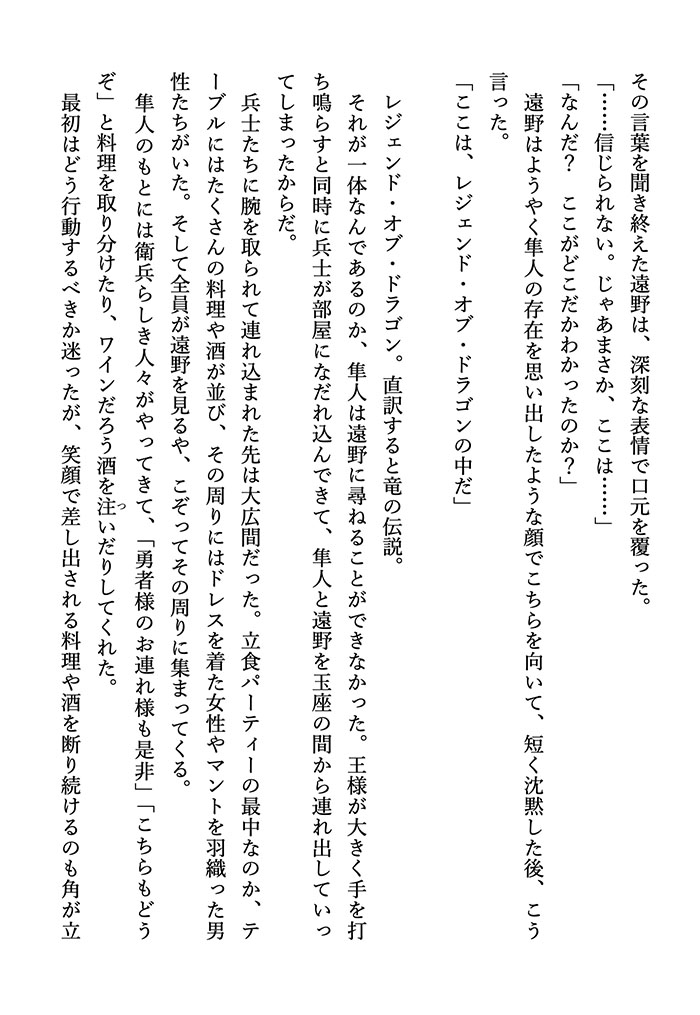 その言葉を聞き終えた遠野は、深刻な表情で口元を覆った。
「……信じられない。じゃあまさか、ここは……」
「なんだ？　ここがどこだかわかったのか？」
　遠野はようやく隼人の存在を思い出したような顔でこちらを向いて、短く沈黙した後、こう
言った。
「ここは、レジェンド・オブ・ドラゴンの中だ」
　レジェンド・オブ・ドラゴン。直訳すると竜の伝説。
　それが一体なんであるのか、隼人は遠野に尋ねることができなかった。王様が大きく手を打
ち鳴らすと同時に兵士が部屋になだれ込んできて、隼人と遠野を玉座の間から連れ出していっ
てしまったからだ。
　兵士たちに腕を取られて連れ込まれた先は大広間だった。立食パーティーの最中なのか、テ
ーブルにはたくさんの料理や酒が並び、その周りにはドレスを着た女性やマントを羽織った男
性たちがいた。そして全員が遠野を見るや、こぞってその周りに集まってくる。
　隼人のもとには衛兵らしき人々がやってきて、「勇者様のお連れ様も是非」「こちらもどう
ぞ」と料理を取り分けたり、ワインだろう酒を注いだりしてくれた。
つ
　最初はどう行動するべきか迷ったが、笑顔で差し出される料理や酒を断り続けるのも角が立